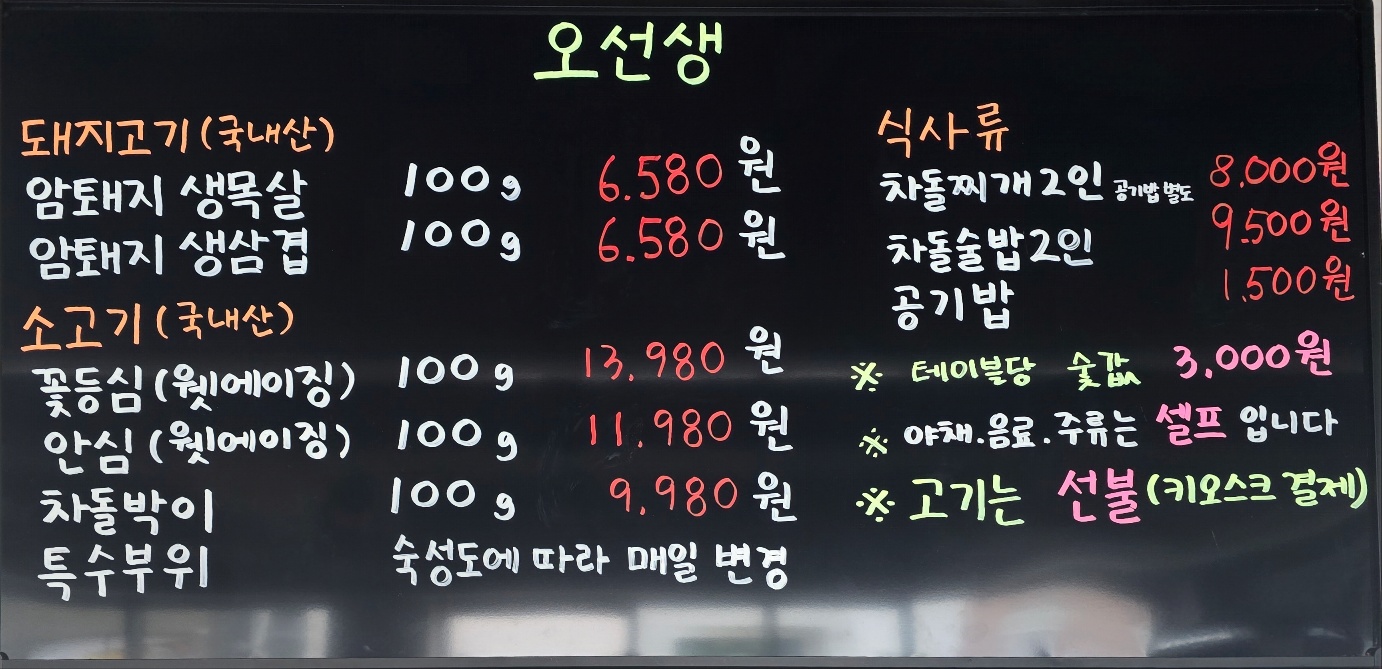 오선생
돼지고기(국내산)
암퇘지 생목살 100g 6.580원
암퇘지 생삼겹 100g 6.580원
소고기(국내산)
꽃등심(웻에이징) 100g 13.980원
안심(웻에이징) 100g 11.980원
차돌박이 100g 9.980원
특수부위 숙성도에 따라 매일 변경
식사류
차돌찌개2인 공기밥 별도 8.000원
차돌술밥2인 9.500원
공기밥 1.500원
※ 테이블당 숯값 3.000원
※ 야채.음료.주류는 셀프 입니다
※ 고기는 선불(키오스크 결제)